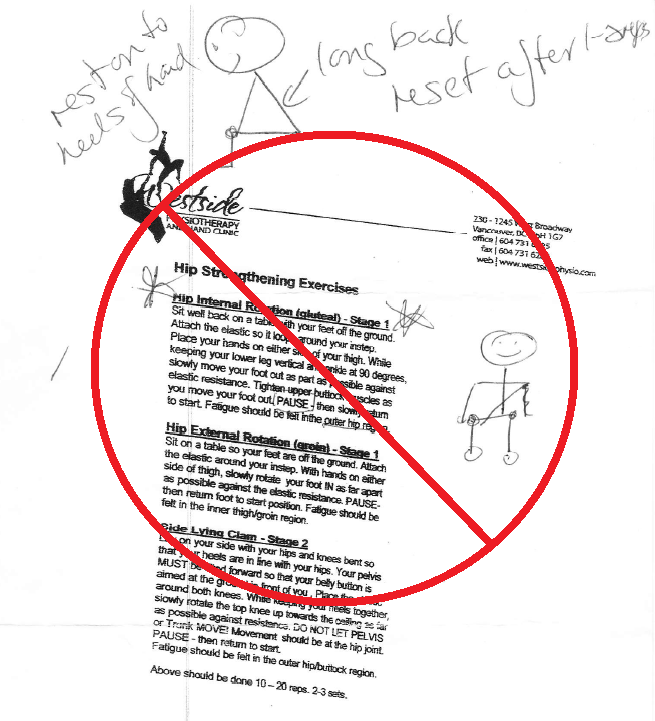 rest on to
heels of hand
long back
reset after 1-2 reps
Westside
PHYSIOTHERAPY
AND HAND CLINIC
230 - 1245 West Broadway
Vancouver, BC V6H 1G7
office | 604 731
fax | 604 731
web | www.westsidephysio.com
Hip Strengthening Exercises
Hip Internal Rotation (gluteal) - Stage 1
Sit well back on a table with your feet off the ground.
Attach the elastic so it loops around your instep.
Place your hands on either side of your thigh. While
keeping your lower leg vertical and ankle at 90 degrees,
slowly move your foot out as part as possible against
elastic resistance. Tighten upper buttock muscles as
you move your foot out. PAUSE - then slowly return
to start. Fatigue should be felt in the outer hip region.
Hip External Rotation (groin) - Stage 1
Sit on a table so your feet are off the ground. Attach
the elastic around your instep. With hands on either
side of thigh, slowly rotate your foot IN as far apart
as possible against the elastic resistance. PAUSE-
then return foot to start position. Fatigue should be
felt in the inner thigh/groin region.
Side Lying Clam - Stage 2
Lie on your side with your hips and knees bent so
that your heels are in line with your hips. Your pelvis
MUST be rolled forward so that your belly button is
aimed at the ground in front of you. Place the elastic
around both knees. While keeping your heels together,
slowly rotate the top knee up towards the ceiling as far
as possible against resistance. DO NOT LET PELVIS
or Trunk MOVE! Movement should be at the hip joint.
PAUSE - then return to start.
Fatigue should be felt in the outer hip/buttock region.
Above should be done 10 – 20 reps. 2-3 sets.